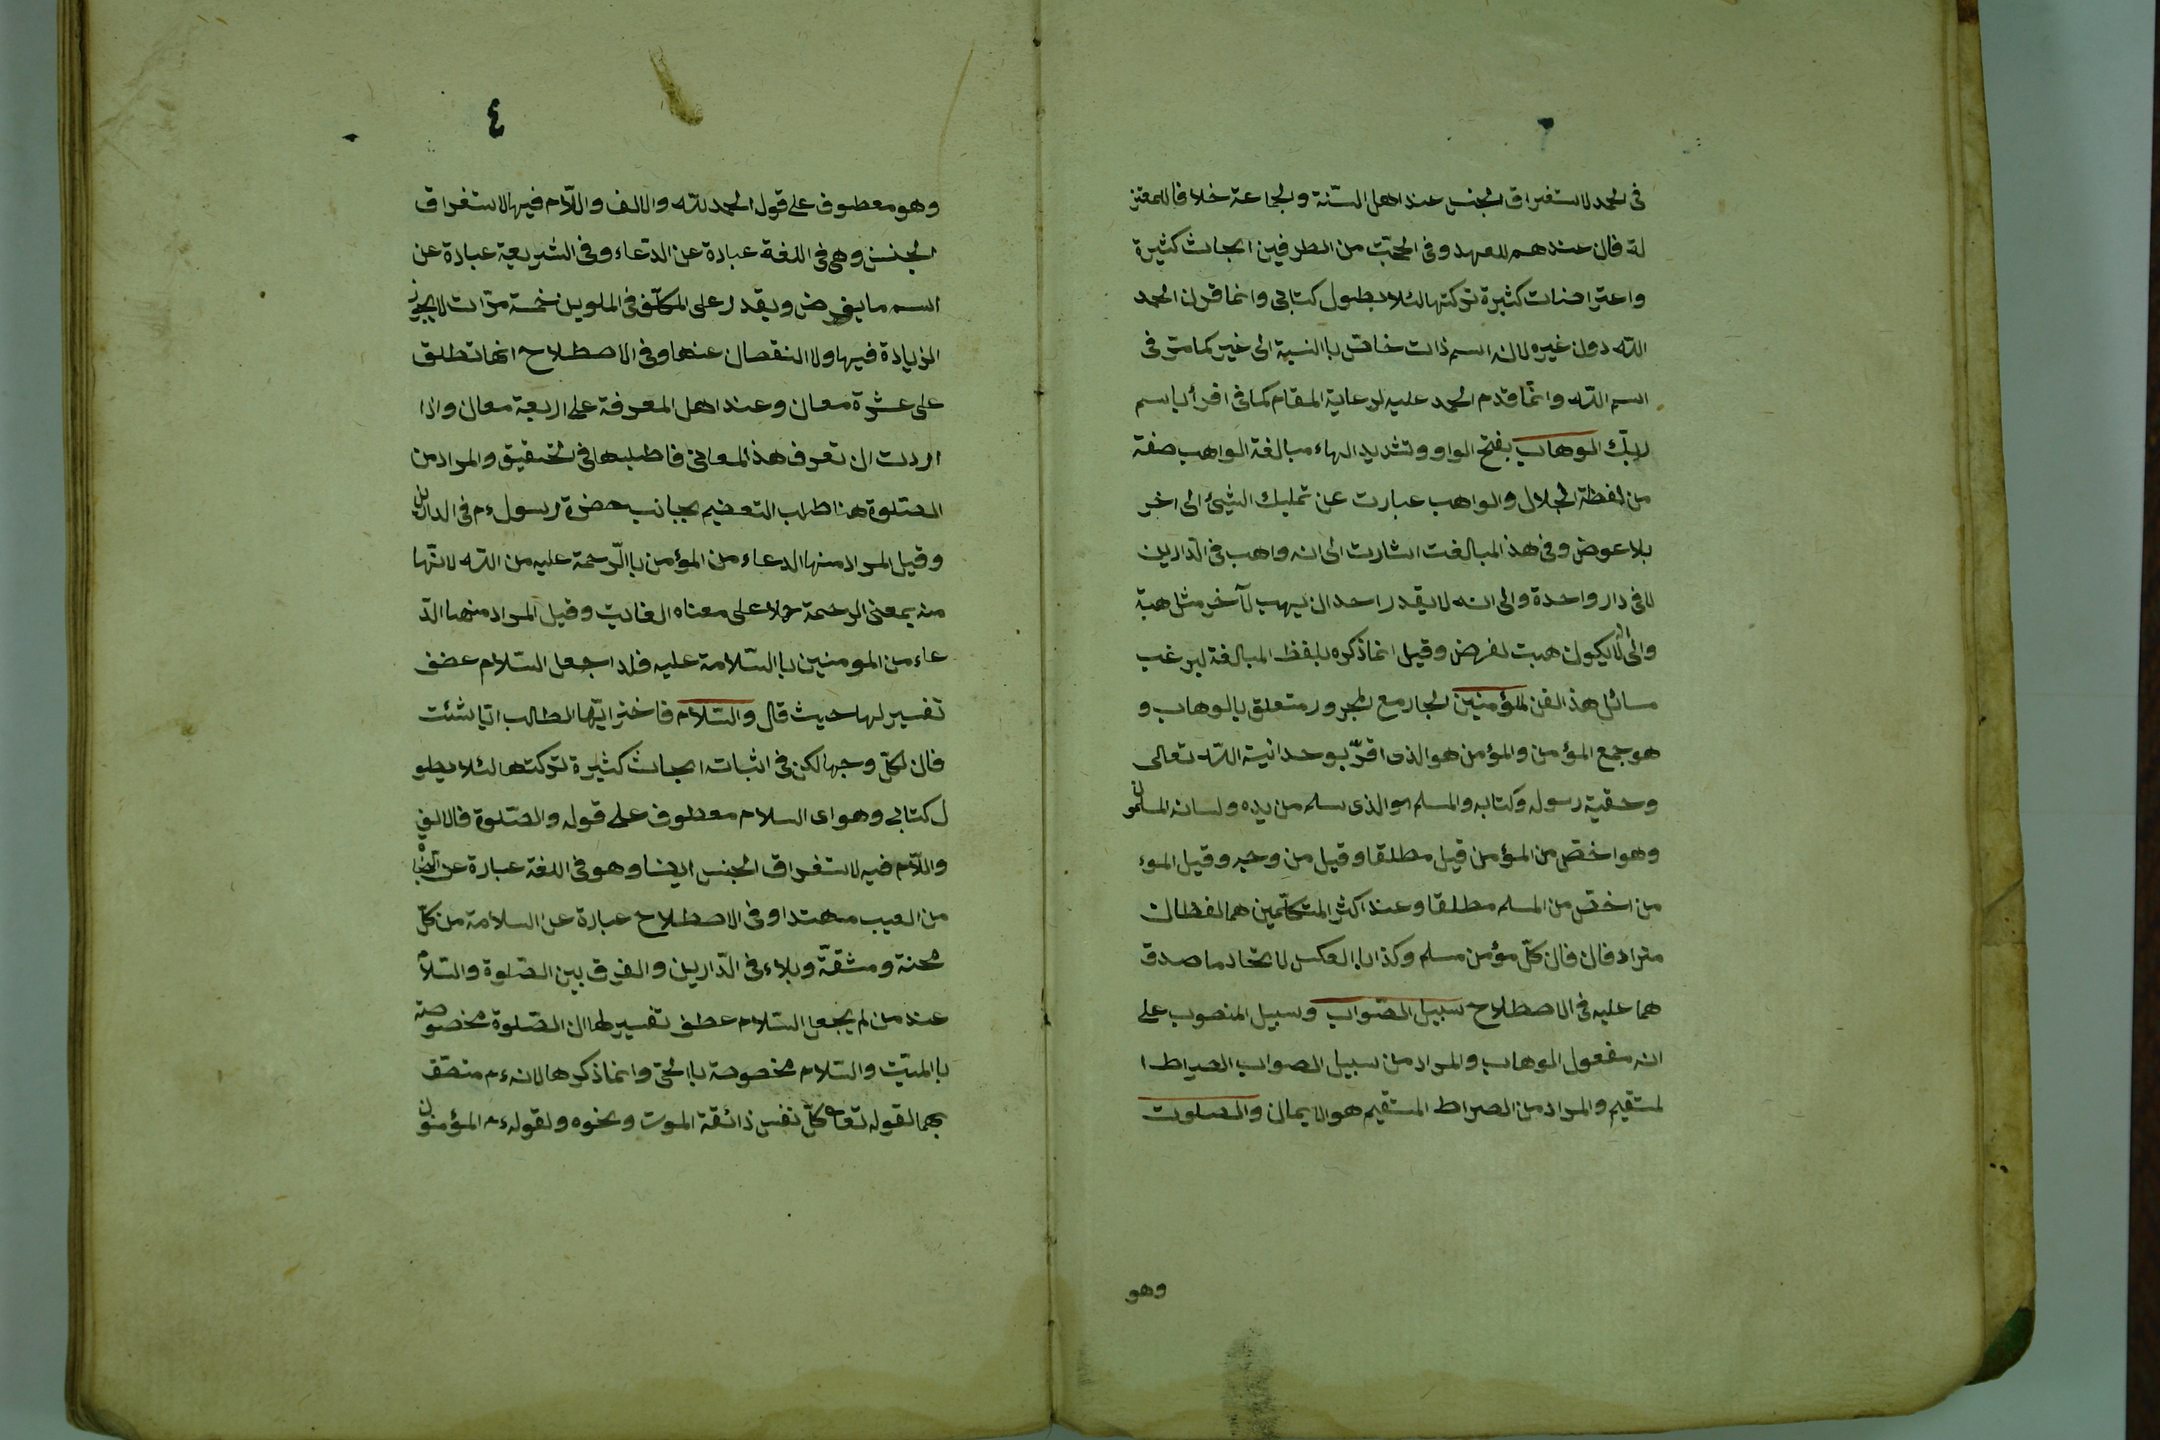 فى الحمد لاستغراق الجنس عند اهل السّنة والجماعة خلافا للمعتز
لة فان عندهم للعهد وفى المحبّت من الطرفين ابحاث كثيرة
واعتراضات كثيرة تركتها لئلا يطول كتابى وانما قرن الحمد
الله دون غيره لانه اسم ذات خاصّ باالنسبة الى غير كما مرّ فى
اسم اللّه وانّما قدم الحمد عليه لرعاية المقام كما فى اقرأ باسم
ربّك الوهاب بفتح الواو وتشديد الهاء مبالغة الواهب صفة
من لفظة الجلال والواهب عبارت عن تمليك الشيئ الى اخر
بلاعوض وفى هذ المبالغت اشارت الى انه واهب فى الدّارين
لا فى دار واحدة والى انه لا يقدر احد ان يهب لآخر مثل هبة
والى ان لا يكون هبت لغرض وقيل انما ذكره بلفظ المبالغة ليرغب
مسائل هذ الفن للمؤمنين الجار مع المجرور متعلق بالوهاب و
هو جمع المؤمن والمؤمن هو الذى اقرّ بوحدانية اللّه تعالى
وحقية رسوله وكتابه والمسلم هو الذى سلم من يده ولسانه المسلمون
وهو اخصّ من المؤمن قيل مطلقا وقيل من وجه وقيل المؤ
من اخصّ من المسلم مطلقا وعند اكثر المتكلّمين هما لفظان
مترادفان فان كلّ مؤمن مسلم وكذا باالعكس لاتحاد ما صدق
هما عليه فى الاصطلاح سبيل الصّواب وسبيل المنصوب على
انه مفعول الوهاب والمراد من سبيل الصواب الصراط ا
لمستقيم والمراد من الصراط المستقيم هو الايمان والصلوت
وهو
٤
وهو معطوف على قول الحمد للّه والالف واللّام فيها لاستغراق
الجنس وهى فى اللغة عبادة عن الدّعاء وفى الشريعة عبادة عن
اسم ما يفرض ويقدر على المكلّف فى الملوين خمسة مرّات لا يجوز
الزيادة فيها ولا النقصان عنها وفى الاصطلاح انها تطلق
على عشرة معان وعند اهل المعرفة على اربعة معان واذا
اردت ان تعرف هذ المعانى فاطلبها فى التحقيق والمراد من
الصّلوة هنا طلب التعظيم بجانب حضرة رسول ءم فى الدارين
وقيل المراد منها الدعاء من المؤمن باالرّحمة عليه من اللّه لانّها
منه بمعنى الرحمة حملا على معناه الغايت وقيل المراد منها الدّ
عاء من المومنين باالسّلامة عليه فلذا جعل السّلام عطف
تفسير لها حيث قال والسّلام فاختر ايّها الطالب ايّا شئت
فان لكلّ وجها لكن فى اثبات ابحاث كثيرة تركتها لئلا يطو
ل كتابى وهو اى السلام معطوف على قوله والصّلوة فالالف
واللّام فيه لاستغراق الجنس ايضا وهو فى اللغة عبارة عن
من العيب مهتدا وفى الاصطلاح عبارة عن السلامة من كلّ
محنة ومشقّة وبلاء فى الدّارين والفرق بين الصّلوة والسّلام
عند من لم يجعل السّلام عطف تفسير لها ان الصّلوة مخصوصة
باالميّت والسّلام مخصوصة باالحىّ وانما ذكرها لانه ءم متّصف
بهما لقوله تعا كلّ نفس ذائقة الموت ونحوه ولقوله ءم المؤمنون